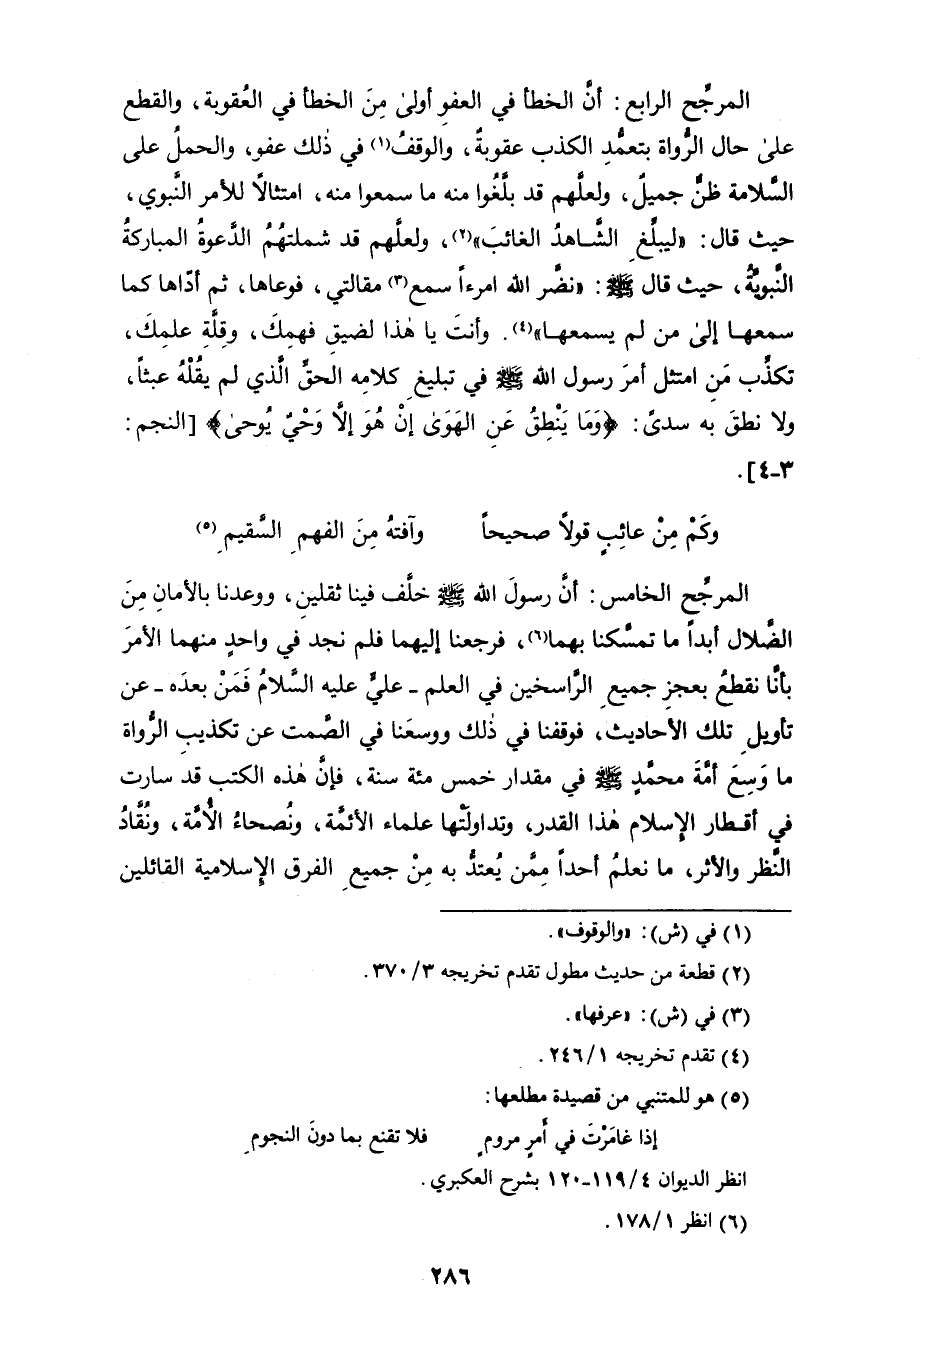 المرجِّح الرابع: أنَّ الخطأ في العفوِ أولىٰ مِنَ الخطأ في العُقوبة، والقطع
علىٰ حال الرُّواة بتعمُّدِ الكذب عقوبةٌ، والوقفُ(١) في ذٰلك عفو، والحملُ على
السَّلامة ظنٌّ جميلٌ، ولعلَّهم قد بلَّغُوا منه ما سمعوا منه، امتثالاً للأمر النَّبوي،
حيث قال: «ليبلِّغِ الشَّاهدُ الغائبَ»(٢)، ولعلَّهم قد شملتهُمُ الدَّعوةُ المباركةُ
النَّبويَّةُ، حيث قال ﷺ: «نضَّر الله امرءاً سمع(٣) مقالتي، فوعاها، ثم أدّاها كما
سمعها إلىٰ من لم يسمعها»(٤). وأنتَ يا هٰذا لضيقِ فهمِكَ، وقِلَّةِ علمِكَ،
تكذِّب مَنِ امتثل أمرَ رسول الله ﷺ في تبليغِ كلامِه الحقِّ الَّذي لم يقُلْهُ عبثاً،
ولا نطقَ به سدىً: ﴿وَمَا يَنْطِقُ عَنِ الهَوَىٰ إنْ هُوَ إلَّا وَحْيٌ يُوحىٰ﴾ [النجم:
٣-٤].
وكَمْ مِنْ عائِبٍ قولاً صحيحاً وآفتهُ مِنَ الفهمِ السَّقيمِ(٥)
المرجِّح الخامس: أنَّ رسولَ الله ﷺ خلَّف فينا ثقلينِ، ووعدنا بالأمانِ مِنَ
الضَّلال أبداً ما تمسَّكنا بهما(٦)، فرجعنا إليهما فلم نجد في واحدٍ منهما الأمرَ
بأنَّا نقطعُ بعجزِ جميعِ الرَّاسخين في العلم - عليٍّ عليه السَّلامُ فَمَنْ بعدَه - عن
تأويلِ تلك الأحاديث، فوقفنا في ذٰلك ووسعَنا في الصَّمت عن تكذيبِ الرُّواة
ما وَسِعَ أمَّةَ محمَّدٍ ﷺ في مقدار خمس مئة سنة، فإنَّ هٰذه الكتب قد سارت
في أقطار الإسلام هٰذا القدر، وتداولَتْها علماء الأئمَّة، ونُصحاءُ الأُمَّة، ونُقَّادُ
النَّظر والأثر، ما نعلمُ أحداً مِمَّن يُعتدُّ به مِنْ جميعِ الفرق الإسلامية القائلين
(١) في (ش): «والوقوف».
(٢) قطعة من حديث مطول تقدم تخريجه ٣/٣٧٠.
(٣) في (ش): «عرفها».
(٤) تقدم تخريجه ١/٢٤٦.
(٥) هو للمتنبي من قصيدة مطلعها:
إذا غامَرْتَ في أَمرٍ مرومٍ فلا تقنع بما دونَ النجومِ
انظر الديوان ٤/١١٩-١٢٠ بشرح العكبري.
(٦) انظر ١/١٧٨.
٢٨٦